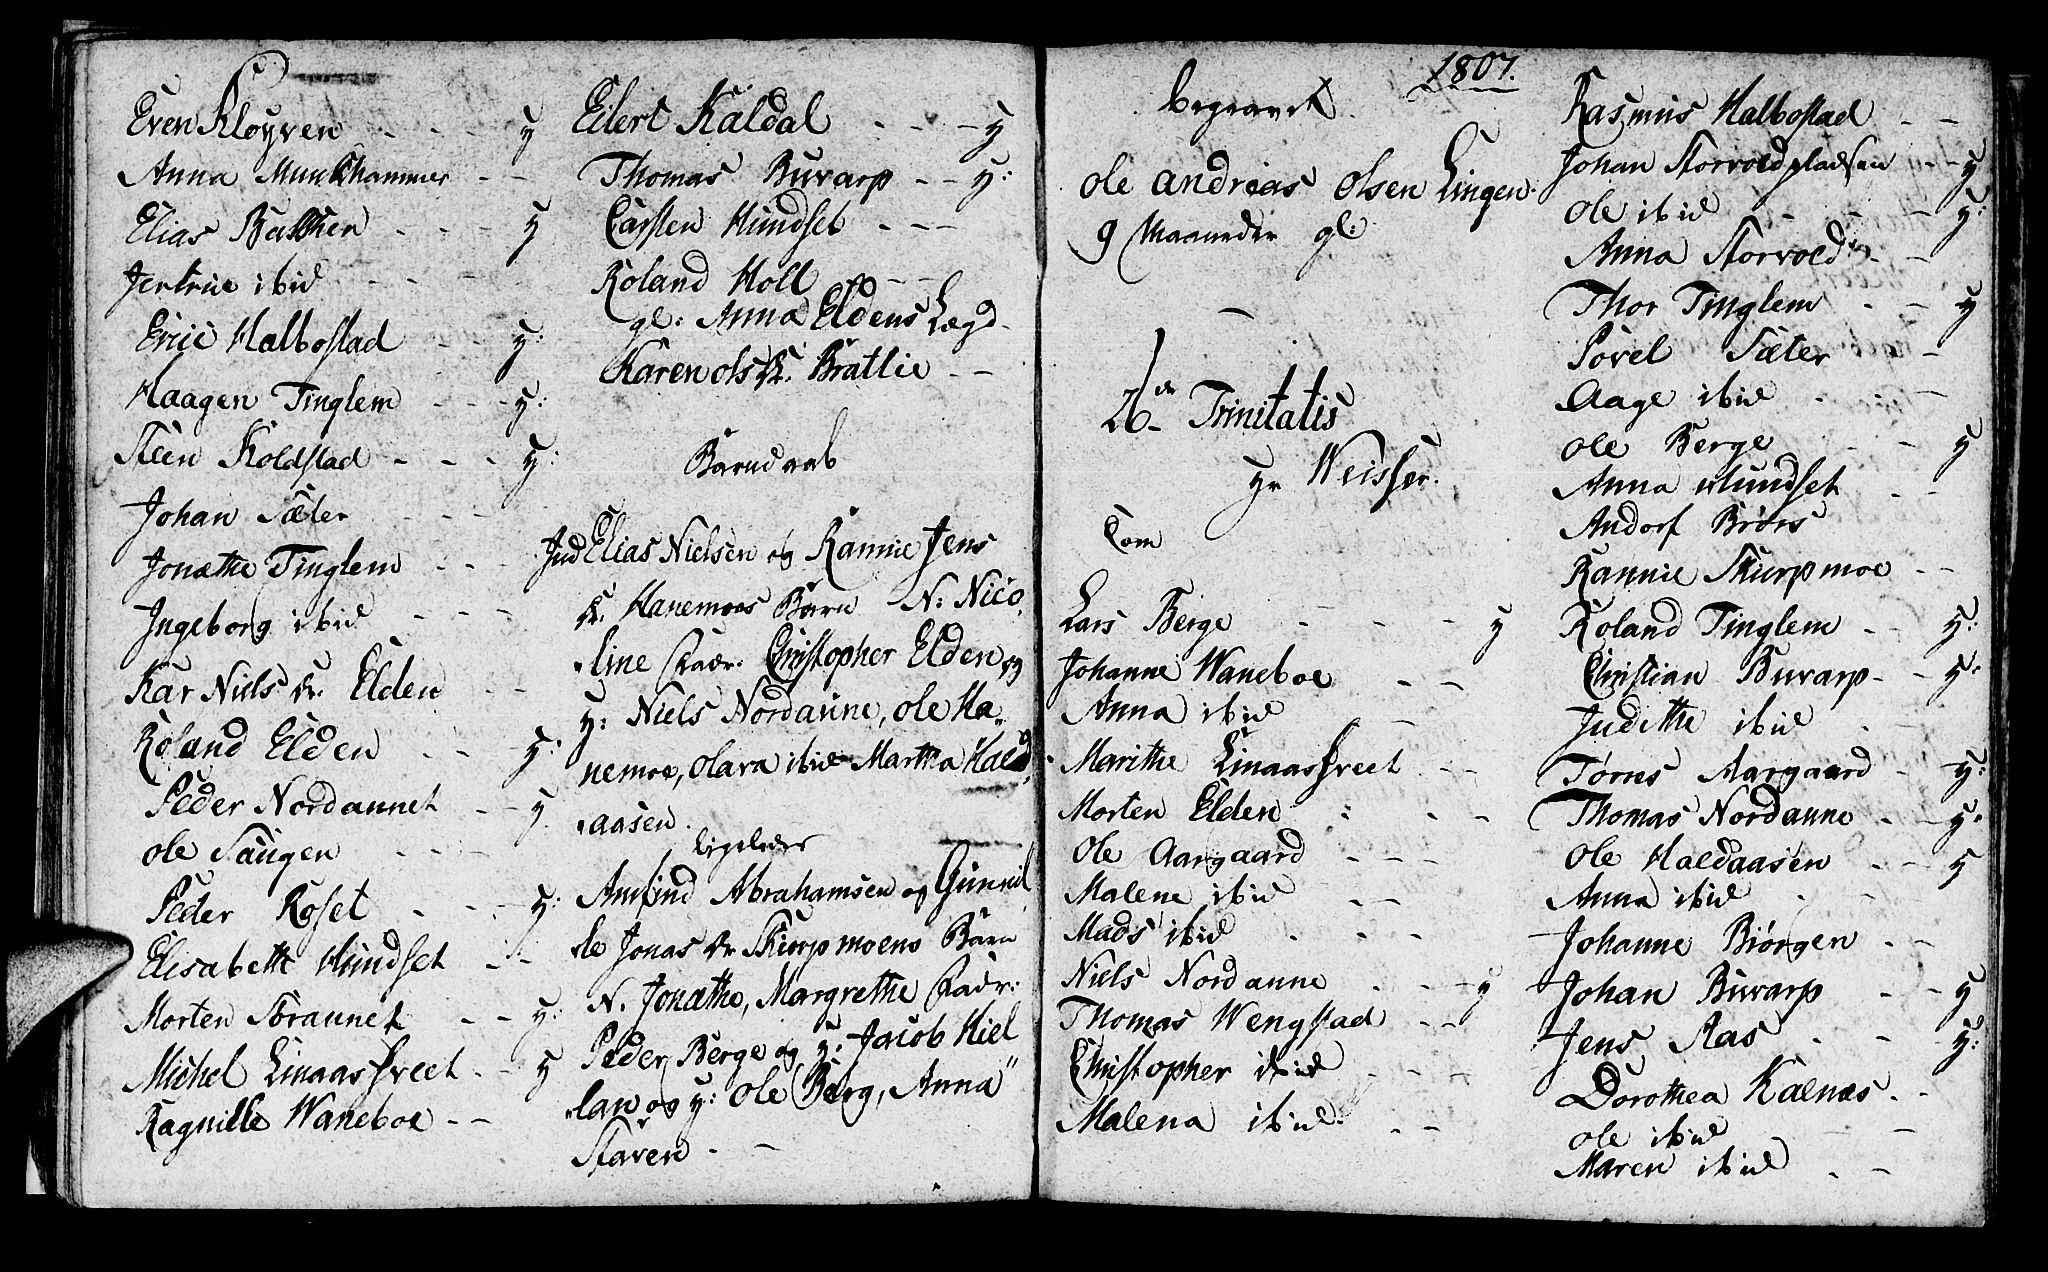 Even Kløyven - - - y
Anna Munkhammer - -
Elias Bakken - - - y
Jertrue ibid - - -
Eric Halbostad - - y:
Haagen Tinglem - - - y:
Steen Koldstad - - - y:
Johan Sæter - - -
Jonethe Tinglem - - -
Ingeborg ibid - - -
Kar Niels dr. Elden - -
Roland Elden - - - y:
Peder Nordaunet - - y.
Ole Saugen - - - -
Peder Roset - - - y:
Elisabeth Hundset - -
Morten Søraunet - - y:
Michel Linaasfreet - - y
Ragnille Waneboe - -
Eilert Kaldal - - - y
Thomas Buvarp - - y:
Carsten Hundset - - -
Roland Holl - - -
gl: Anna Eldens Lægd
Karen Ols dr. Brattlie - -
Barnedaab
Elias Nielsen og Rannie Jens
dr. Hanemoes Barn N: Nico,
,,line Fadr. Christopher Elden og
y: Niels Nordaune, Ole Ha,,
nemoe, Olava ibid Martha Hald,
,,aasen.
ligeledes
Amund Abrahamsen og Gunnil
de Jonas dr Skurpmoens Barn
N. Jonethe, Margrethe Fadr:
Peder Berge og y. Jacob Kiel
,,lan og y: Ole Berg, Anna
Staven - -
1807.
begravet.
Ole Andreas Olsen Lingen
9 Maaneder gl:
26de Trinitatis
Hr Weisser.
Com
Lars Berge - - - - y
Johanne Waneboe - -
Anna ibid - -
Marithe Linaasfreet - -
Morten Elden - - -
Ole Aargaard - - -
Malene ibid - -
Mads ibid - - -
Niels Nordaune - - - y
Thomas Wengstad - -
Christopher ibid - - -
Malena ibid: - -
Rasmus Halbostad - -
Johan Storvoldpladsen - - y
Ole ibid - - - y:
Anna Storvold - -
Thor Tinglem - - y
Povel Sæter - -
Aage ibid - -
Ole Berge - - y
Anna Hundset - -
Andorf Brøns
Rannie Skurpmoe - -
Roland Tinglem - - y:
Christian Buvarp - - y:
Judithe ibid - -
Tørres Aargaard - - y:
Thomas Nordaune - - y.
Ole Haldaasen - - y
Anna ibid - -
Johanne Biørgen - -
Johan Buvarp - - y
Jens Aas - - y:
Dorothea Kalnæs - -
Ole ibid - -
Maren ibid - -